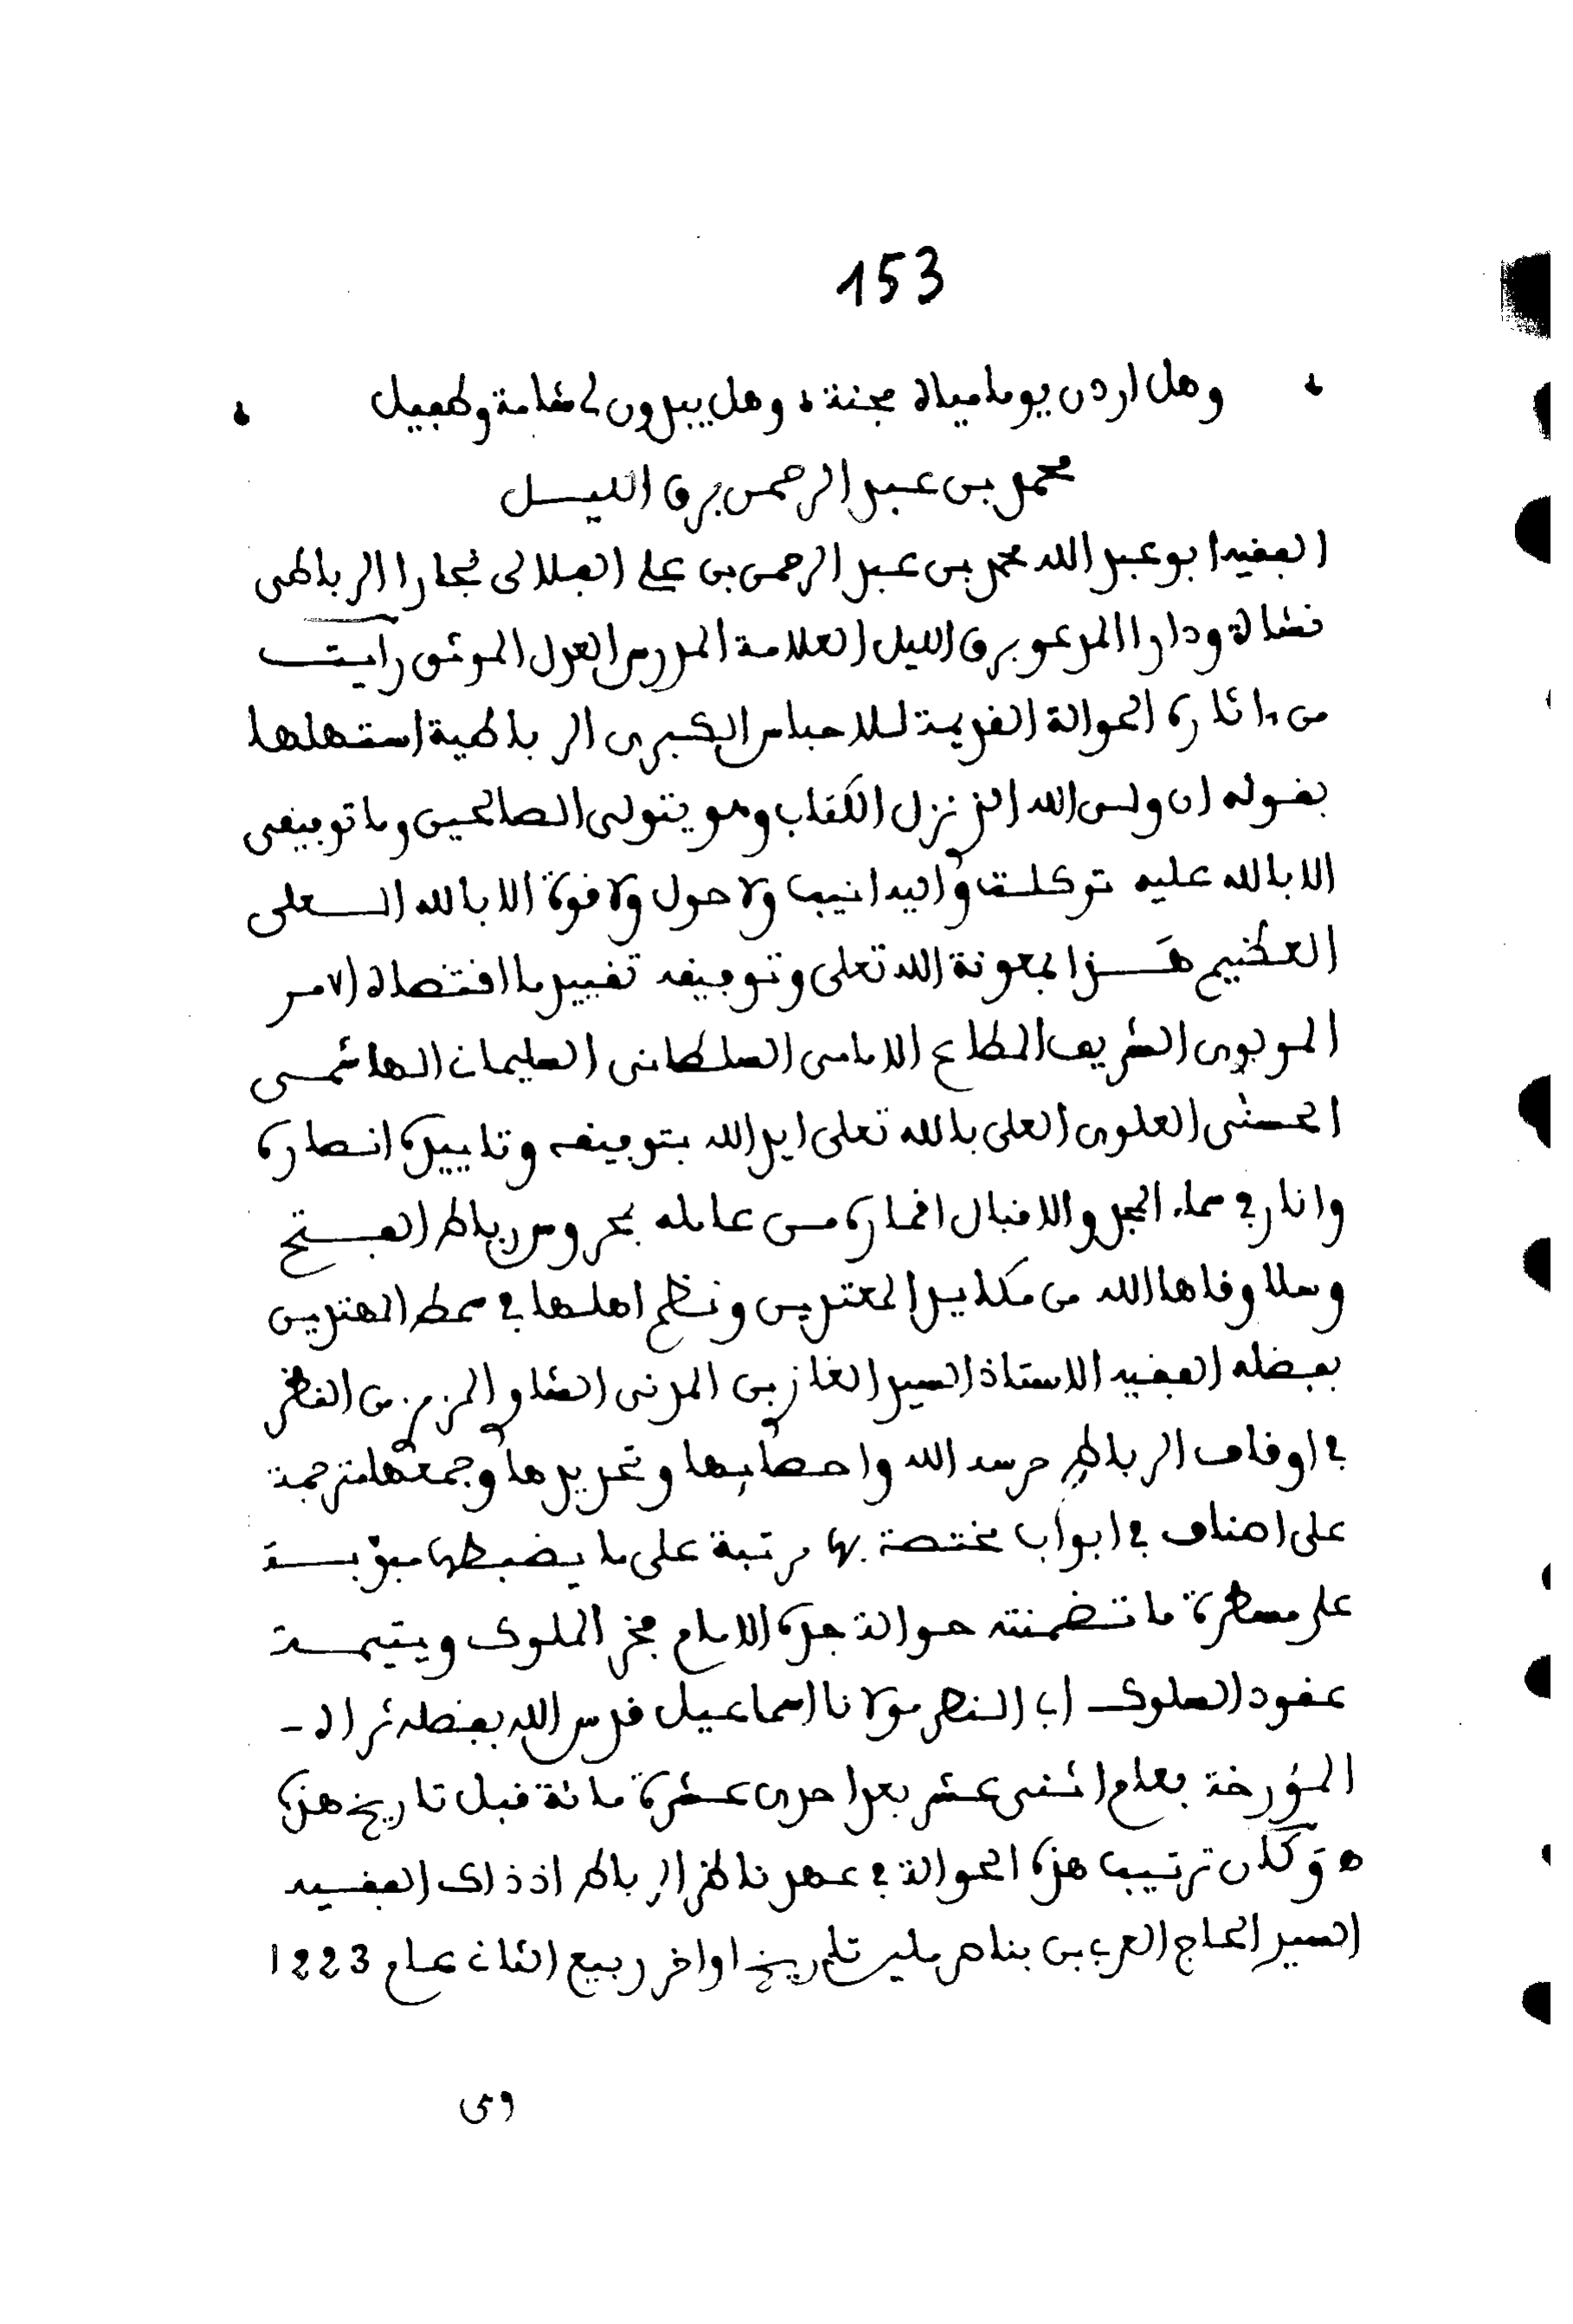 153
وهل اردن يوما مياه مجنة ، وهل يبدون لى شامة وطفيل
محمد بن عبد الرحمن برق الليـــل
الفقيه ابو عبد الله محمد بن عبد الرحمن بن علي الهلالى نجارا الرباطى
نشاة ودارا المدعو برق الليل العلامة المدرس العدل الموثق رأيت
من ءاثاره الحوالة القديمة للاحباس الكبرى الرباطية استهلها
بقوله ان وليى الله الذ نزل الكتاب وهو يتولى الصالحين وما توفيقى
الا بالله عليه توكلت واليه انيب ولا حول ولا قوة الا بالله الــعلى
العظيم هــذا بمعونة الله تعلى وتوفيقه تقييد ما اقتضاه الامر
المولوى الشريف المطاع الامامى السلطانى السليمان الهاشمــى
الحسنى العلوى العلى بالله تعلى ايد الله بتوفيقه وتاييده انصاره
وانار فى سماء المجد والاقبال اقماره مــن عامله بمحروس رباط الفــتح
وسلا وقاهما الله من مكايد المعتدين ونظم اهلها فى سمط المهتدين
بفضله الفقيه الاستاذ السيد الغاز بن المدنى الشاو المزمزى من النظر
فى اوقاف الرباط حرسه الله واحصايها وتحريرها وجمعها مترجمة
على اصناف فى ابواب مختصة بها مرتبة على ما يضبطها مبوّبــة
على مسطرة ما تضمنته حوالة جده الامام فخر الملوك ويتيمــة
عقود السلوك اب النصر مولانا اسماعيل قدس الله بفضله ثراه -
المؤرخة بعام اثنى عشر بعد احدى عشرة مائة قبل تاريخ هذه
ه وكان ترتيب هذه الحوالة فى عهد ناظر الرباط اذ ذاك الفقــيه
السيد الحاج العرب بن بناصر تاريخ اواخر ربيع الثان عـام 1223
ومن